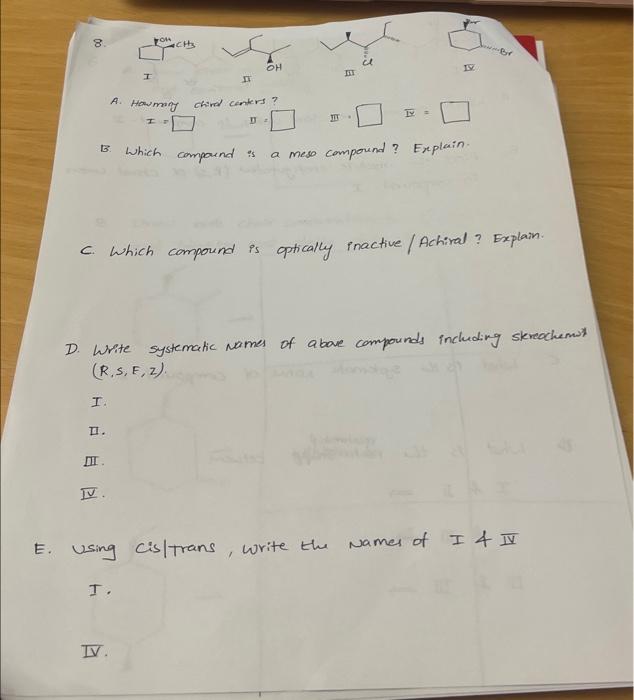 8.
OH
CH3
OH
Cl
Br
I
II
III
IV
A. How many chiral centers?
I =
II =
III =
IV =
B. Which compound is a meso compound? Explain.
C. Which compound is optically inactive / Achiral? Explain.
D. Write systematic names of above compounds including
(R, S, E, Z).
I.
II.
III.
IV.
E. Using cis/trans, write the names of I & IV
I.
IV.